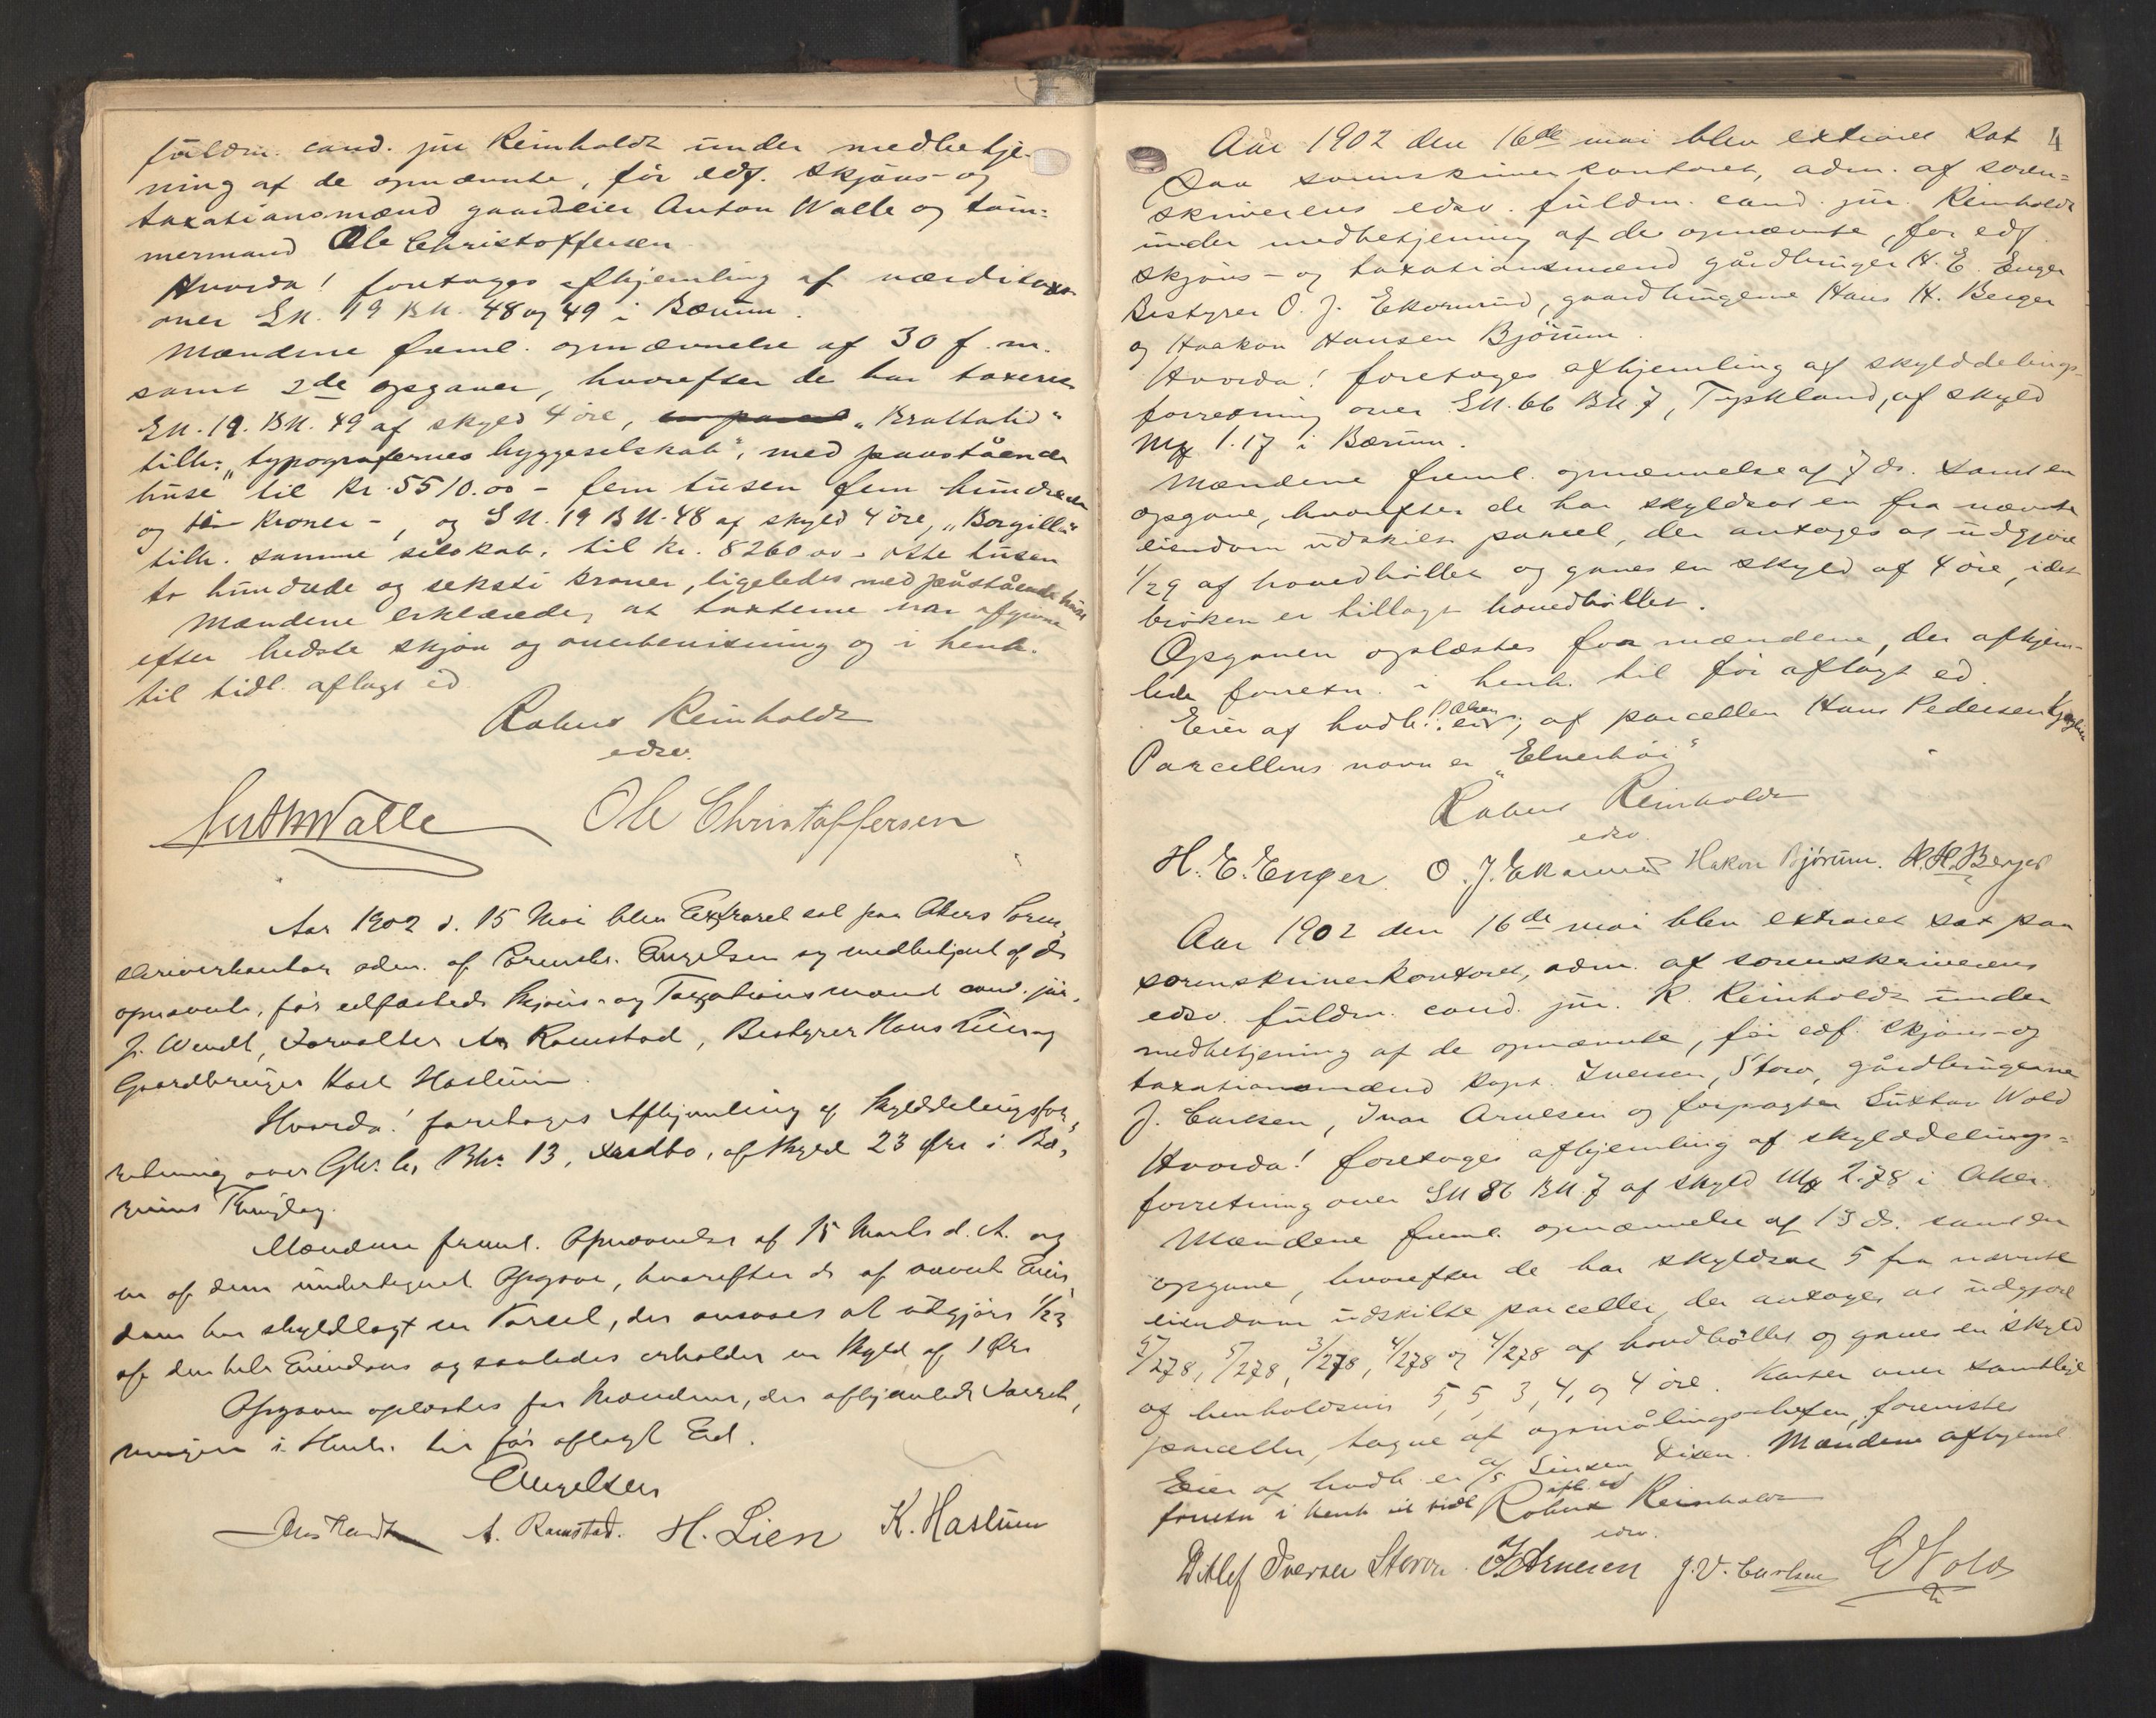 fuldm. cand. jur Reinholdt under medbetje-
ning af de opnævnte, før edf. skjøns- og
taxationsmænd gaardeier Anton Walle og tøm-
mermand Ole Christoffersen
Hvorda! foretages afhjemling af værditaxt
over GN. 19 BN. 48 og 49 i Bærum.
Mændene freml. opnævnelse af 30 f. m.
samt 2de opgaver, hvorefter de har taxeret
GN. 19. BN. 49 af skyld 4 øre, "Brattalid"
tilh. "typografernes byggeselskab", med paastående
huse til kr. 5510.00 - fem tusen fem hundrede
og ti kroner -, og GN. 19 BN. 48 af skyld 4 øre, "Borgilli"
tilh. samme selskab, til kr. 8260 00 - otte tusen
to hundrede og seksti kroner, ligeledes med påstående huse
Mændene erklærede, at taxterne var afgivne
efter bedste skjøn og overbevisning og i henh.
til tidl. aflagt ed
Robert Reinholdt
edsv.
Walle Ole Christoffersen
Aar 1902 d. 15 Mai blev Extraret sat paa Akers Soren-
skriverkontor adm. af Sorenskr. Engelsen og medbetjent af de
opnævnte, før edfæstede Skjøns- og Taxationsmænd cand. jur.
J. Wendt, Forvalter A. Ramstad, Bestyrer Hans Lien og
Gaardbruger Karl Haslum.
Hvorda! foretages Afhjemling af Skylddelingsfor-
retning over Gnr. Bnr. 13, af Skyld 23 Øre i Bæ-
rums Thinglag.
Mændene freml. Opnævnelse af 15 Marts d. A. og
en af dem undertegnet Opgave, hvorefter de af nævnte Eien-
dom har skyldlagt en Parcel, der ansaaes at udgjøre 1/23
af den hele Eiendom og saaledes erholder en Skyld af 1 Øre
Opgaven oplæstes for Mændene, der afhjemlede Forret-
ningen i Henh. til før aflagt Ed.
Engelsen
A. Ramstad. H. Lien K. Haslum
4
Aar 1902 den 16de mai blev extraret sat
paa sorenskriverkontoret, adm. af soren-
skriverens edsv. fuldm. cand. jur. Reinholdt
under medbetjening af de opnævnte, før edf.
skjøns- og taxationsmænd gårdbruger H. E. Enger
Bestyrer O. J. Ekornrud, gaardbrugerne Hans H. Berger
og Haakon Hansen Bjørum.
Hvorda! foretages afhjemling af skylddelings-
forretning over GN. 66 BN. 7, Tyskland, af skyld
Mk 1.17 i Bærum.
Mændene freml. opnævnelse af 7 ds. samt en
opgave, hvorefter de har skyldsat en fra nævnte
eiendom udskilt parcel, der antages at udgjøre
1/29 af hovedbøllet og gaves en skyld af 4 øre, idet
brøken er tillagt hovedbøllet.
Opgaven oplæstes for mændene, der afhjem-
lede forretn. i henh. til før aflagt ed.
Eier af hovdb. er ; af parcellen Hans Pedersen
Parcellens navn er "Elverhøi"
Robert Reinholdt
edsv.
H. E. Enger. O. J. Ekornrud Hakon Bjørum. H. H. Berger
Aar 1902 den 16de mai blev extraret sat paa
sorenskriverkontoret, adm. af sorenskriverens
edsv. fuldm. cand. jur. R. Reinholdt under
medbetjening af de opnævnte, før edf. skjøns- og
taxationsmænd kapt. Iversen, Storo, gårdbrugerne
J. Carlsen, Ivar Arnesen og forpagter Gustav Wold
Hvorda! foretages afhjemling af skylddelings-
forretning over GN 86 BN. 7 af skyld Mk 2.78 i Aker.
Mændene freml. opnævnelse af 13 ds. samt en
opgave, hvorefter de har skyldsat 5 fra nævnte
eiendom udskilte parceller, der antages at udgjøre
5/278, 5/278, 3/278, 4/278 og 4/278 af hovdbøllet og gaves en skyld
af henholdsvis 5, 5, 3, 4, og 4 øre. Karter over samtlige
parceller, tagne af opmålingschefen, forevistes
Eier af hovdb. er A/S Sinsen. Mændene afhjeml
forretn i henh til tidl afl. ed
Robert Reinholdt
edsv.
Ditlef Iversen Storo. I. Arnesen J. V. Carlsen G Wold